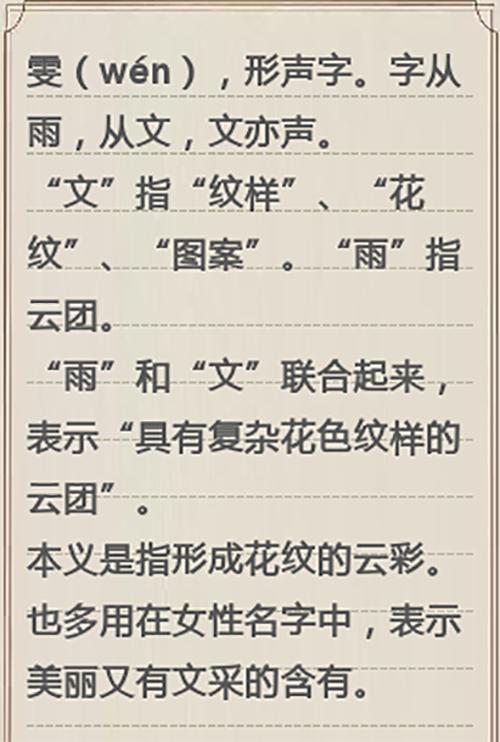 雯（wén），形声字。字从
雨，从文，文亦声。
“文”指“纹样”、“花
纹”、“图案”。“雨”指
云团。
“雨”和“文”联合起来，
表示“具有复杂花色纹样的
云团”。
本义是指形成花纹的云彩。
也多用在女性名字中，表示
美丽又有文采的含有。